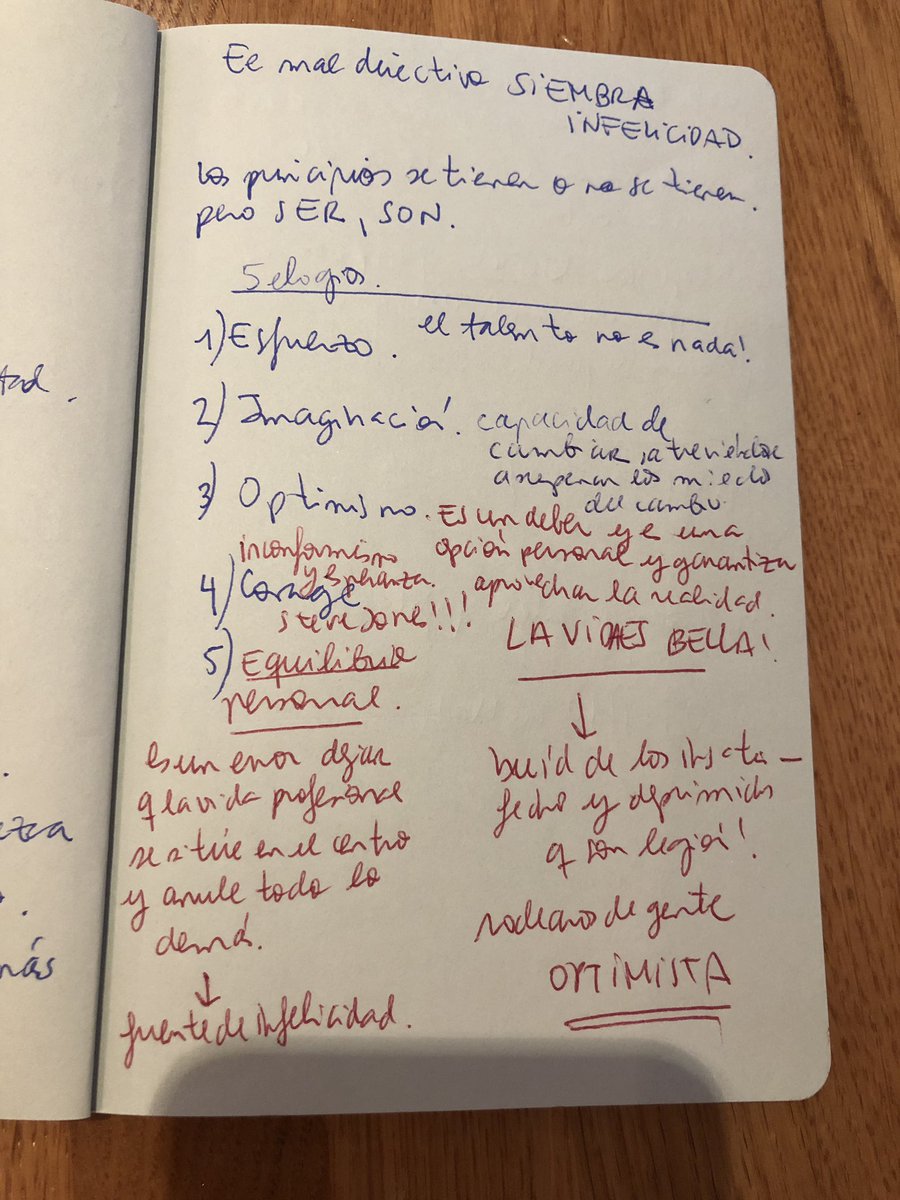 El mal directivo SIEMBRA
INFELICIDAD.
los principios se tienen o no se tienen.
pero SER, SON.
5 elogios.
1) Esfuerzo. el talento no es nada!
2) Imaginación. capacidad de
cambiar, atreviéndose
a superar los miedos
del cambio.
3) Optimismo. Es un deber y es una
opción personal y garantiza
aprovechar la realidad.
LA VIDA ES BELLA!
inconformismo
y esperanza.
4) Corage
steve JOBS!!!
5) Equilibrio
personal.
es un error dejar
q la vida profesional
se sitúe en el centro
y anule todo lo
demás.
↓
fuente de infelicidad.
↓
huid de los insatis-
fechos y deprimidos
q son legión!
rodearos de gente
OPTIMISTA
tad.
ás